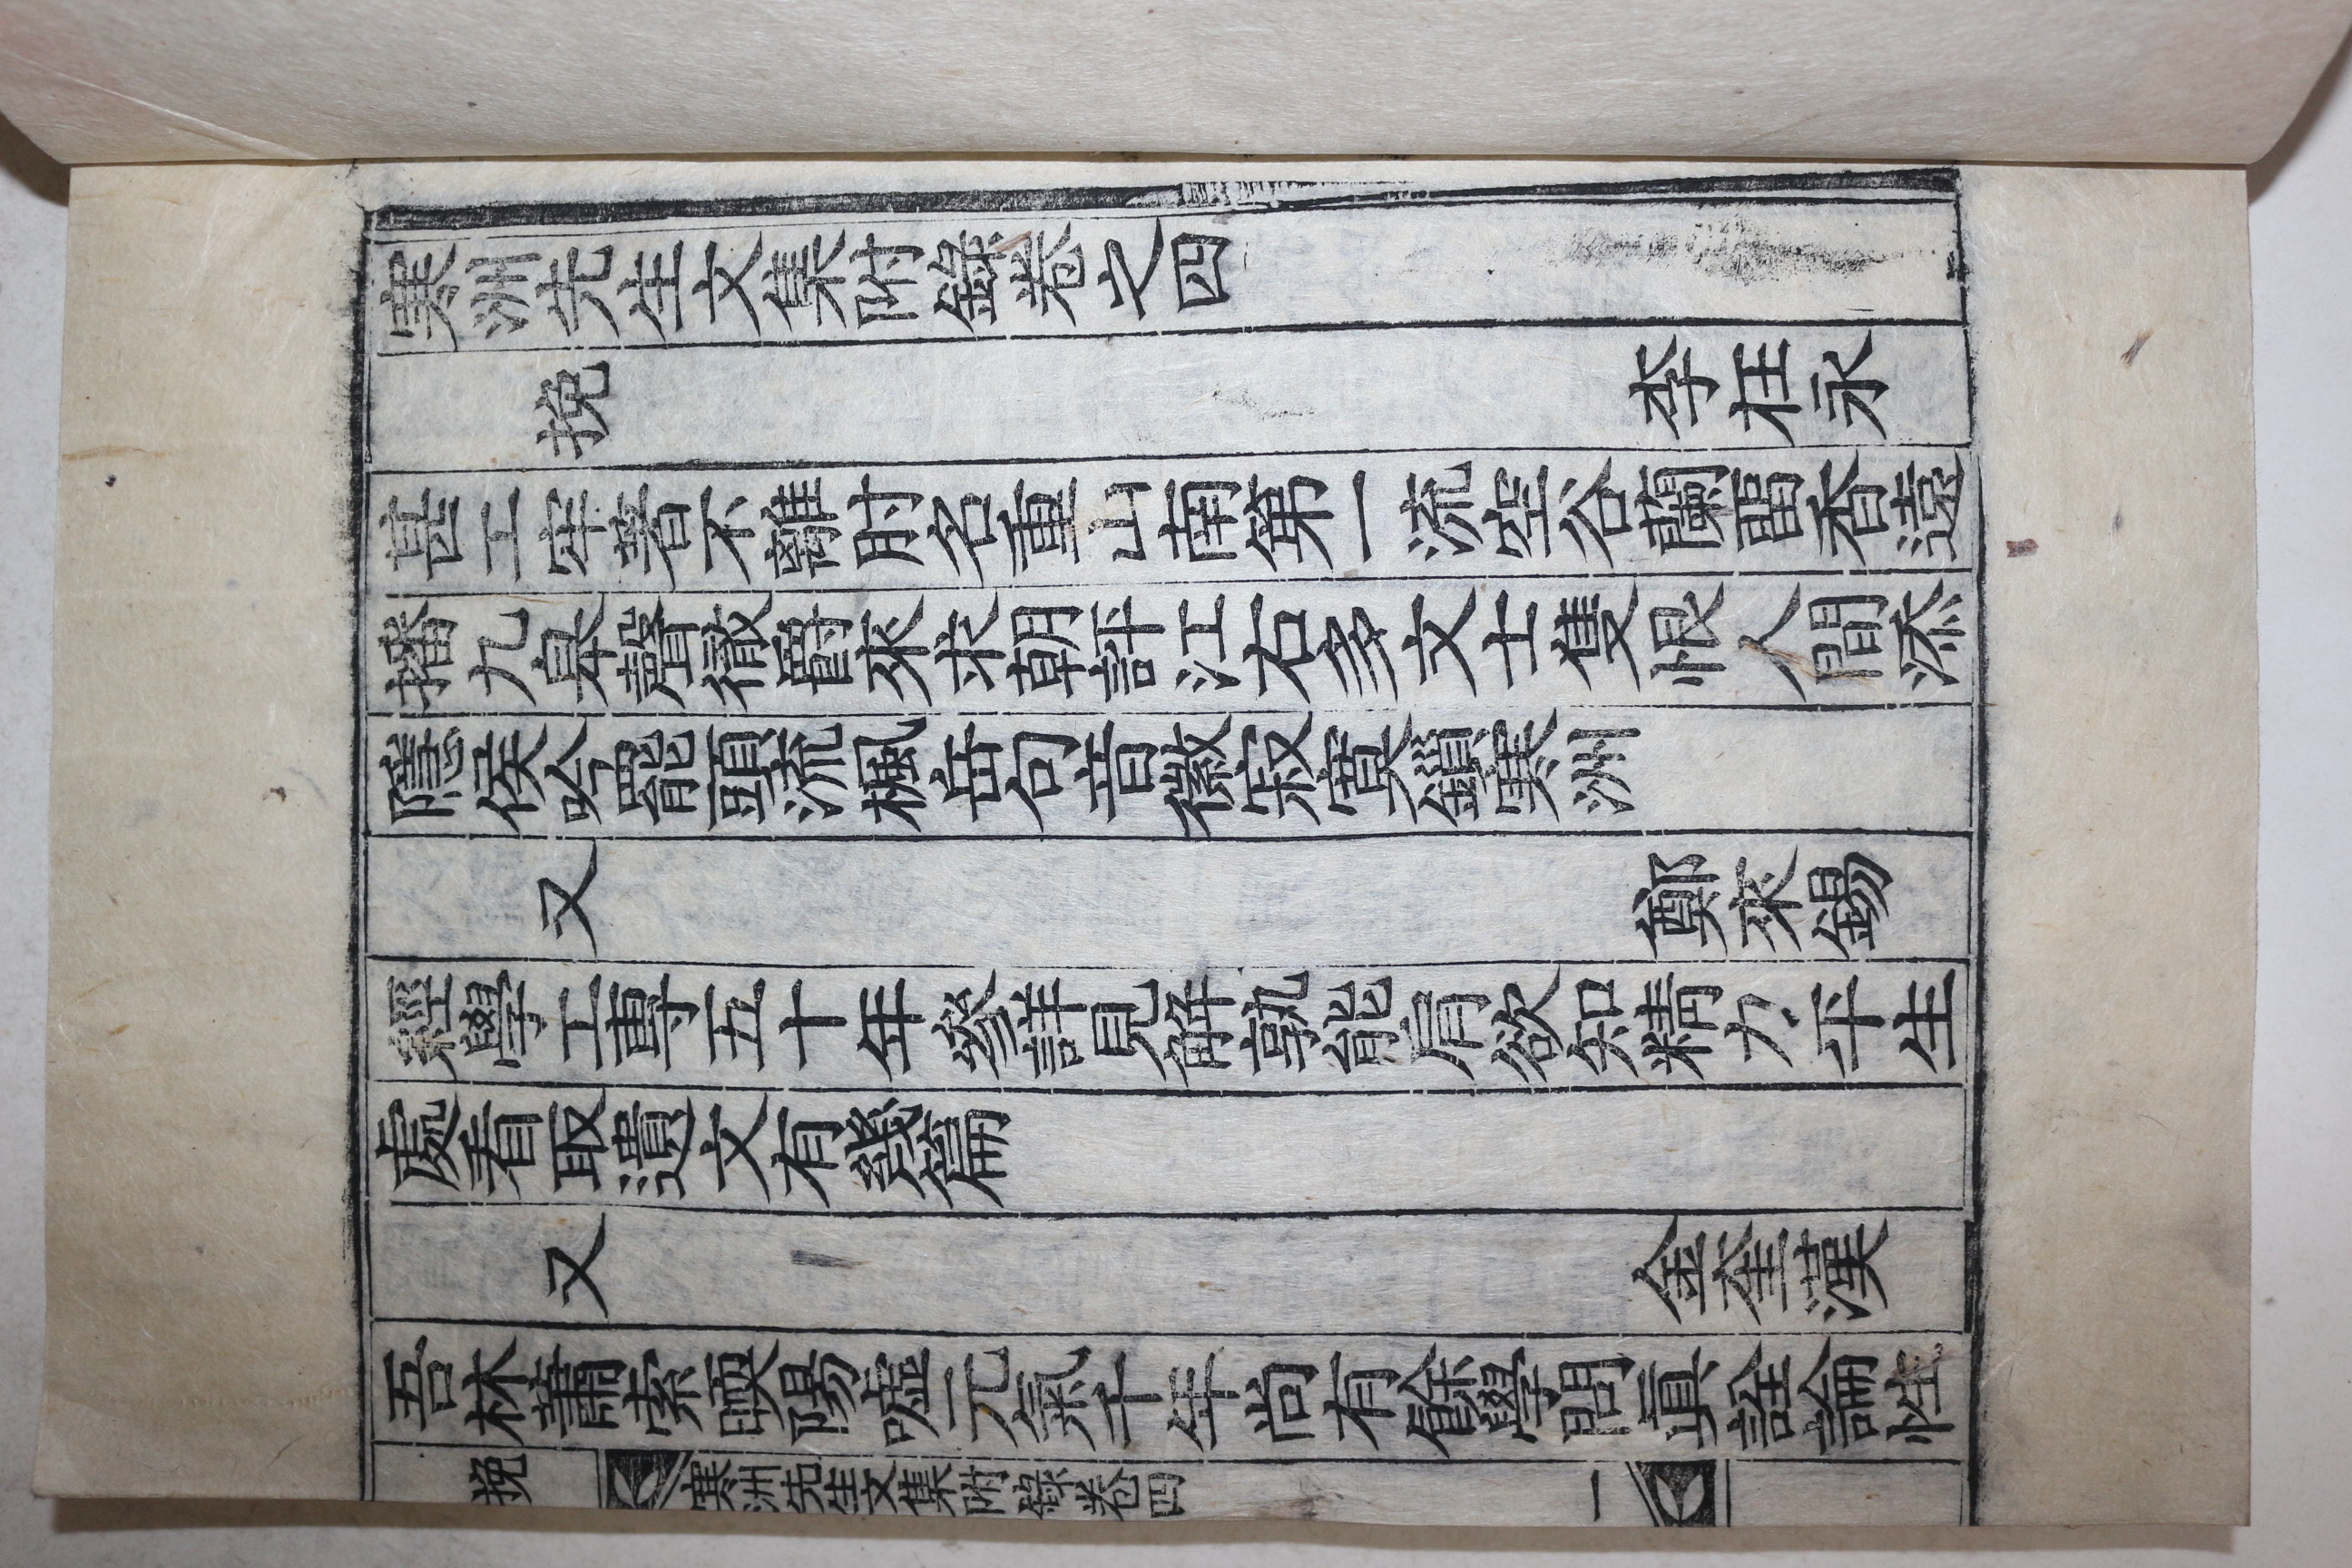 寒洲先生文集附錄卷之四
挽 李在永
甚工牢着不離肘名重山南第一流空谷蘭留香遠
播九臯聲徹爵來求朝評江右多文士隻恨人間添
隱侯吟罷頭流楓岳句音徽寂寞鎖寒洲
又 鄭來錫
經學工專五十年參詳見解孰能肩欲知精力平生
處看取遺文有幾篇
又 金奎漢
吾林蕭索陽噓元氣千年尚有餘學問眞詮論性
挽 寒洲先生文集附錄卷四 一